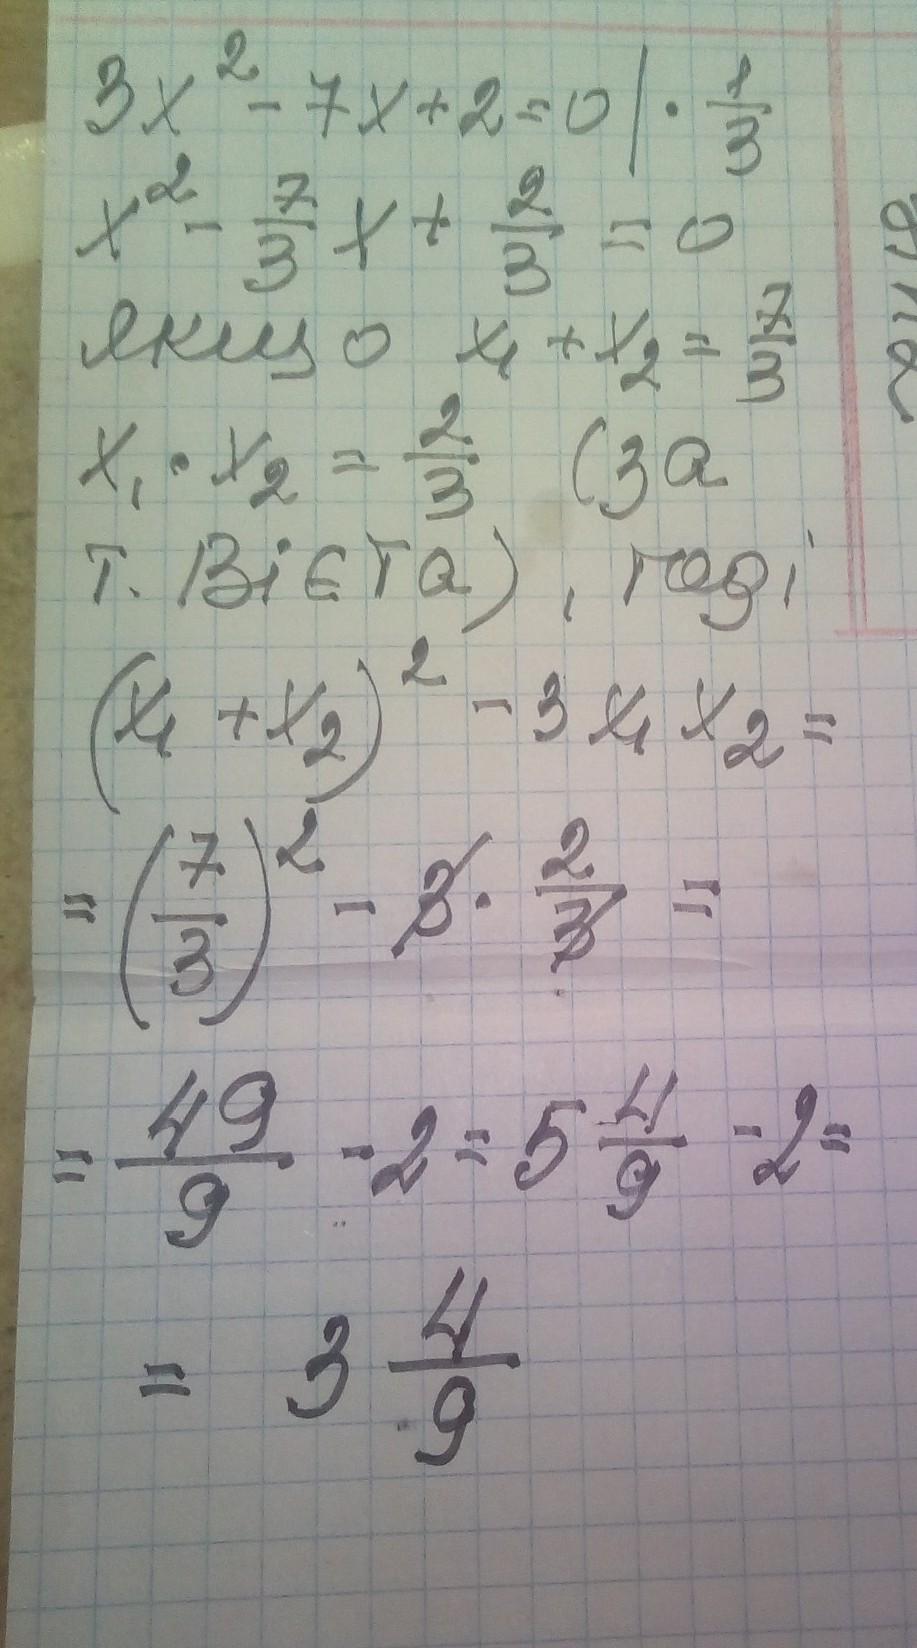 3x² - 7x + 2 = 0 | · 1/3
x² - 7/3 x + 2/3 = 0
якщо x₁ + x₂ = 7/3
x₁ · x₂ = 2/3 (за
т. Вієта), тоді
(x₁ + x₂)² - 3 x₁ x₂ =
= (7/3)² - 3 · 2/3 =
= 49/9 - 2 = 5 4/9 - 2 =
= 3 4/9